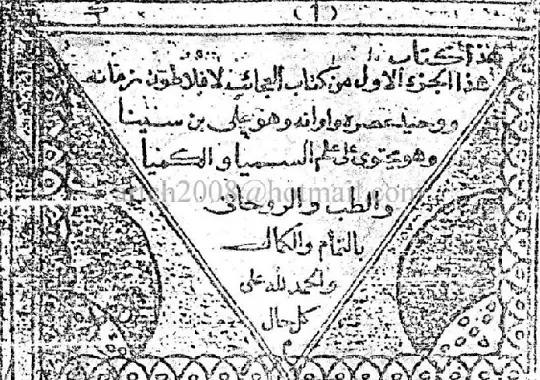 (١)
هذا كتاب
هذا الجزء الاول من كتاب العجائب لافلاطون زمانه
ووحيد عصره واوانه وهو على بن سنينا
وهو يحتوى على علم السميا والكميا
والطب والروحانى
بالتمام والكمال
والحمد لله على
كل حال
م
2008@hotmail.com